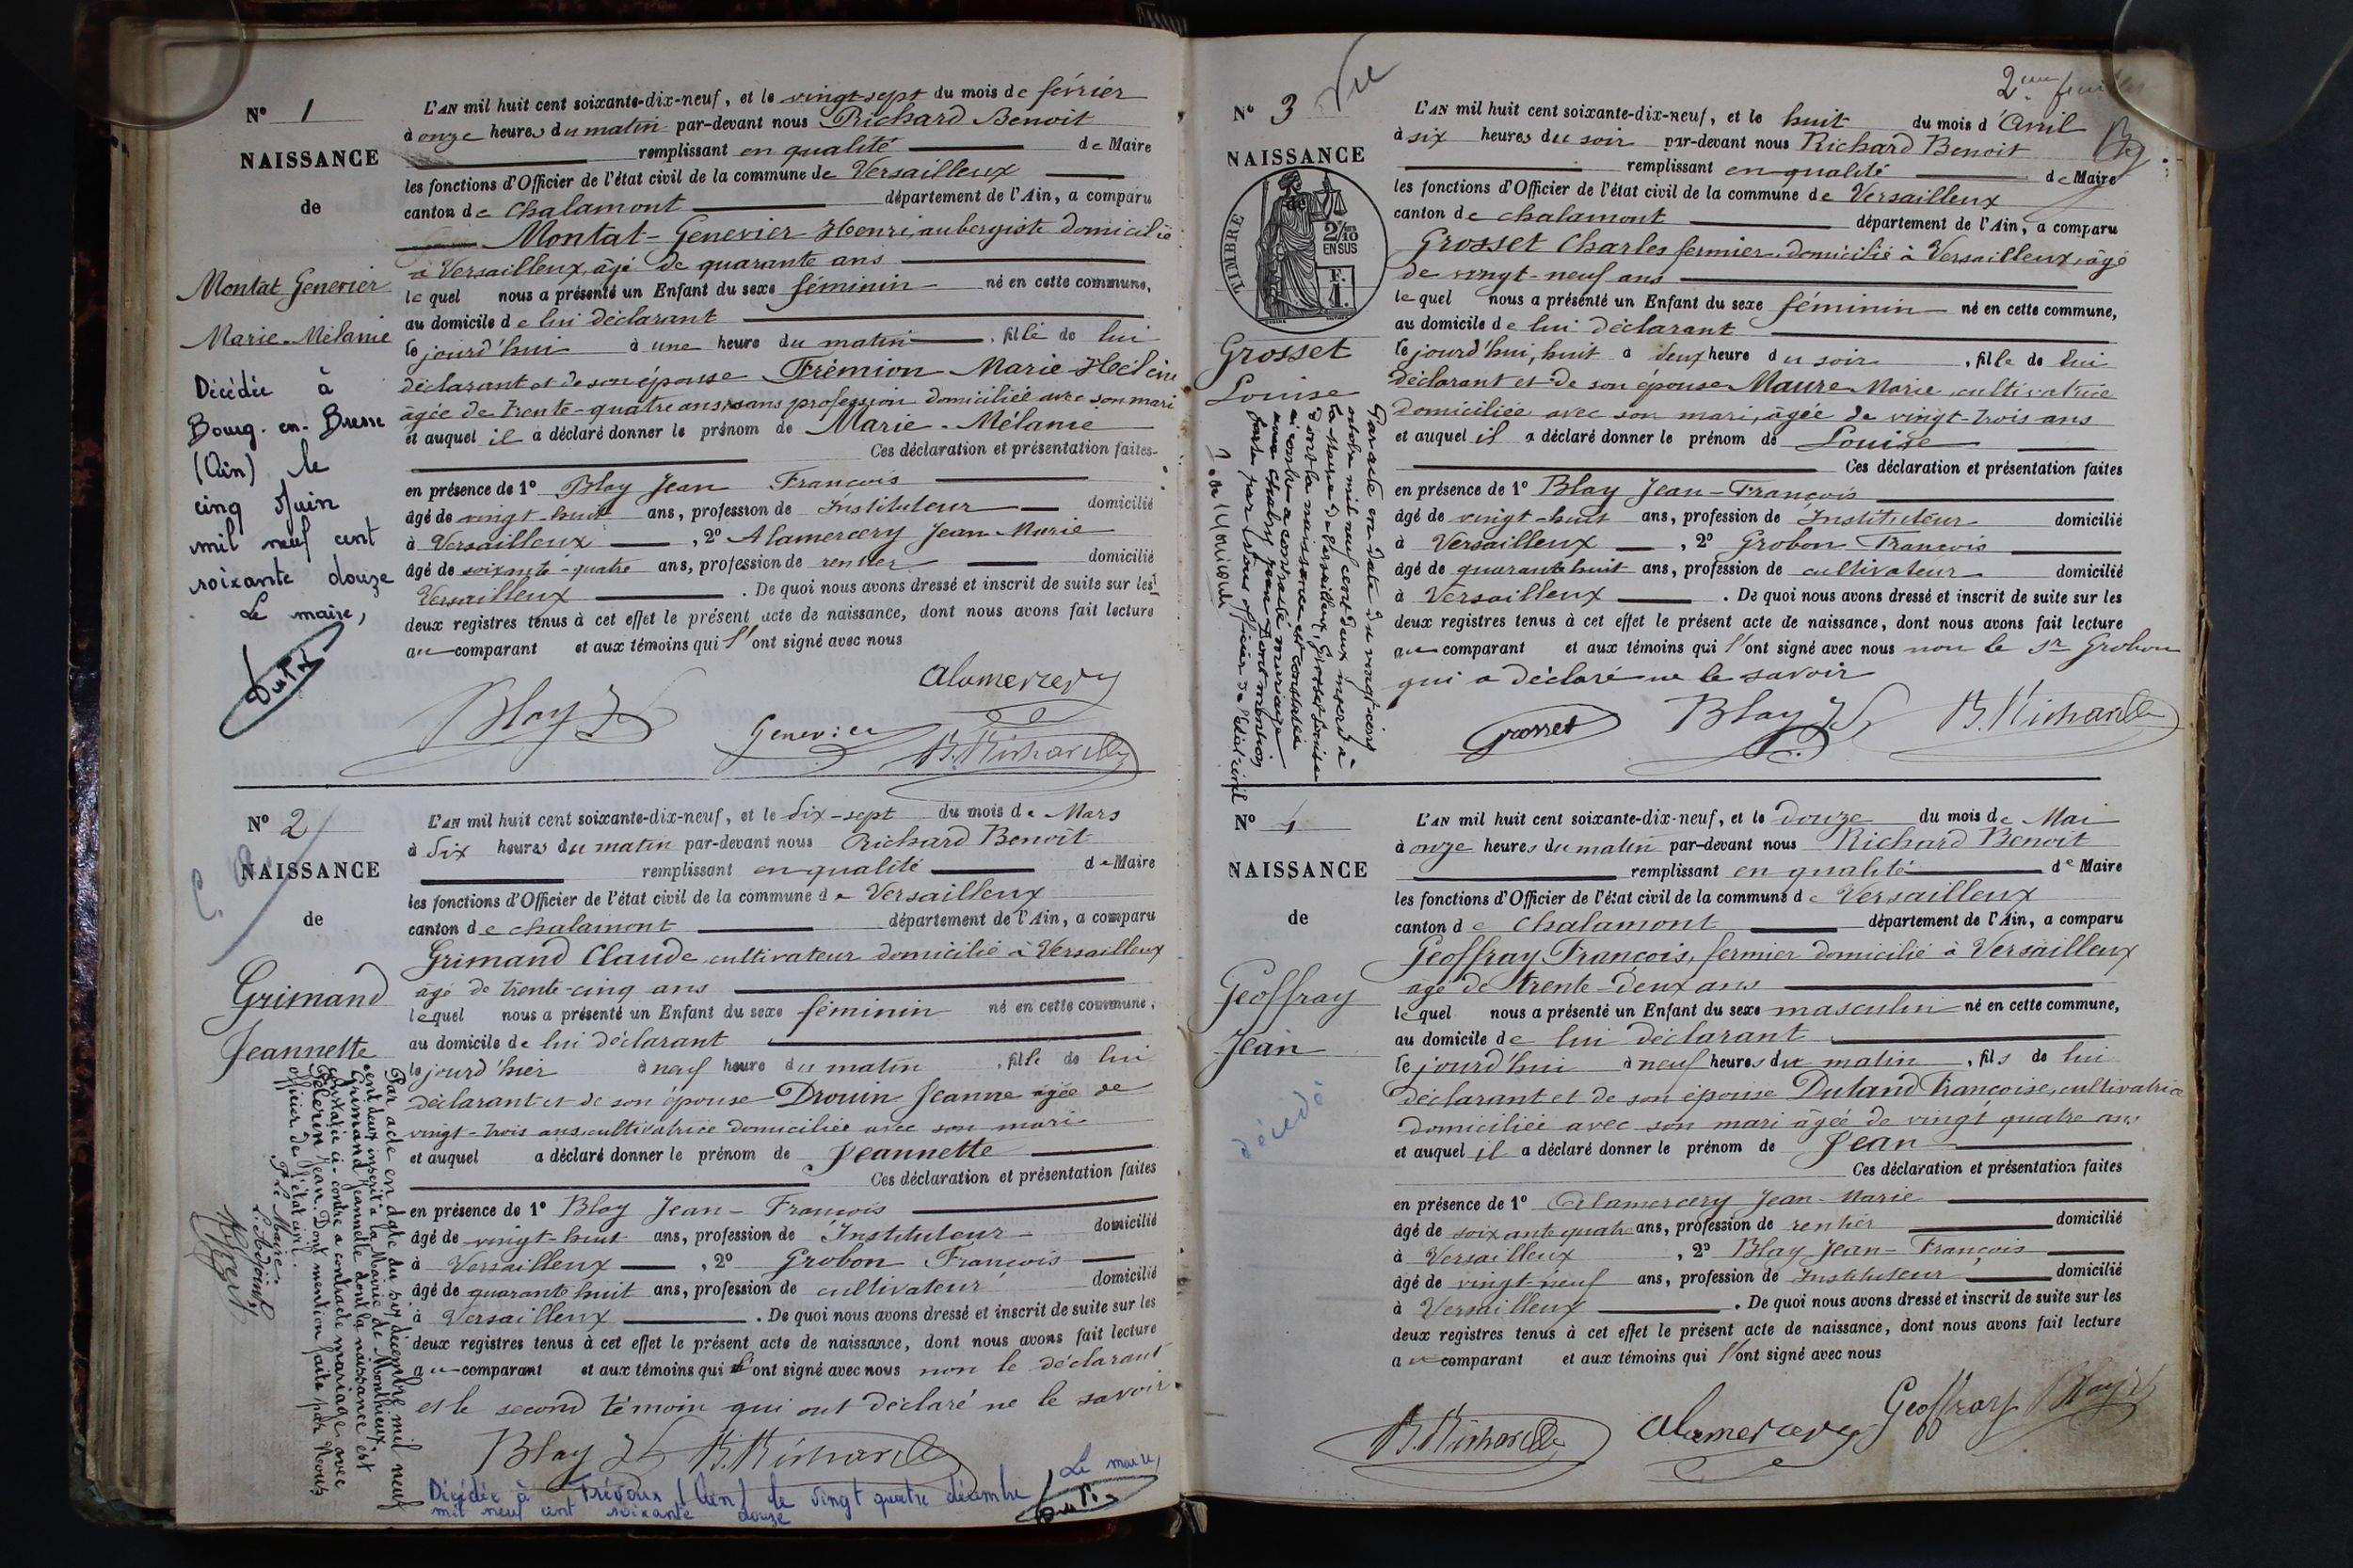 N° 1
NAISSANCE
de
Montat Genevier
Marie-Mélanie
Décédée à
Bourg-en-Bresse
(Ain) le
cinq Juin
mil neuf cent
soixante douze
Le maire,
L'AN mil huit cent soixante-dix-neuf, et le vingt-sept du mois de février
à onze heures du matin par-devant nous Richard Benoit
remplissant en qualité de Maire
les fonctions d'Officier de l'état civil de la commune de Versailleux
canton de Chalamont département de l'Ain, a comparu
Montat-Genevier Henri, aubergiste domicilié
à Versailleux, âgé de quarante ans
lequel nous a présenté un Enfant du sexe féminin né en cette commune,
au domicile de lui déclarant
le jourd'hui à une heure du matin, fille de lui
déclarant et de son épouse Frémion Marie-Hélène
âgée de trente-quatre ans, sans profession domiciliée avec son mari
et auquel il a déclaré donner le prénom de Marie-Mélanie
Ces déclaration et présentation faites
en présence de 1° Blay Jean François
âgé de vingt-huit ans, profession de Instituteur domicilié
à Versailleux, 2° Alamercery Jean-Marie
âgé de soixante-quatre ans, profession de rentier domicilié
Versailleux. De quoi nous avons dressé et inscrit de suite sur les
deux registres tenus à cet effet le présent acte de naissance, dont nous avons fait lecture
au comparant et aux témoins qui l'ont signé avec nous
Alamercery
Blay Genevier
B. Richard
N° 2
NAISSANCE
de
Grimand
Jeannette
Par acte en date du six décembre mil neuf
cent deux inscrit à la Mairie de Monthieux,
Grimand Jeannette dont la naissance est
constatée ci-contre a contracté mariage avec
Pélerin Jean. Dont mention faite par Nous
officier de l'état civil.
Pr Le Maire,
L'Adjoint
L'AN mil huit cent soixante-dix-neuf, et le dix-sept du mois de Mars
à dix heures du matin par-devant nous Richard Benoît
remplissant en qualité de Maire
les fonctions d'Officier de l'état civil de la commune de Versailleux
canton de Chalamont département de l'Ain, a comparu
Grimand Claude, cultivateur domicilié à Versailleux
âgé de trente-cinq ans
lequel nous a présenté un Enfant du sexe féminin né en cette commune,
au domicile de lui déclarant
le jourd'hier à neuf heure du matin, fille de lui
déclarant et de son épouse Drouin Jeanne âgée de
vingt-trois ans, cultivatrice domiciliée avec son mari
et auquel a déclaré donner le prénom de Jeannette
Ces déclaration et présentation faites
en présence de 1° Blay Jean-François
âgé de vingt-huit ans, profession de Instituteur domicilié
à Versailleux, 2° Grobon François
âgé de quarante huit ans, profession de cultivateur domicilié
à Versailleux. De quoi nous avons dressé et inscrit de suite sur les
deux registres tenus à cet effet le présent acte de naissance, dont nous avons fait lecture
au comparant et aux témoins qui l'ont signé avec nous non le déclarant
et le second témoin qui ont déclaré ne le savoir
Blay B. Richard
Décédée à Trévoux (Ain) le vingt quatre décembre
mil neuf cent soixante douze
Le maire,
2eme feuillet
Vu
N° 3
NAISSANCE
de
TIMBRE
2/10
EN SUS
F. 1.
Grosset
Louise
Par acte en date du vingt-cinq
octobre mil neuf cent deux inscrit à
la Mairie de Versailleux, Grosset Louise
dont la naissance est constatée
ci-contre a contracté mariage
avec Chabry Jean Dont mention
faite par Nous officier de l'Etat-civil
L'AN mil huit cent soixante-dix-neuf, et le huit du mois d'Avril
à six heures du soir par-devant nous Richard Benoit
remplissant en qualité de Maire
les fonctions d'Officier de l'état civil de la commune de Versailleux
canton de Chalamont département de l'Ain, a comparu
Grosset Charles fermier, domicilié à Versailleux, âgé
de vingt-neuf ans
lequel nous a présenté un Enfant du sexe féminin né en cette commune,
au domicile de lui déclarant
le jourd'hui, huit à deux heure du soir, fille de lui
déclarant et de son épouse Maure Marie, cultivatrice
domiciliée avec son mari, âgée de vingt-trois ans
et auquel il a déclaré donner le prénom de Louise
Ces déclaration et présentation faites
en présence de 1° Blay Jean-François
âgé de vingt-huit ans, profession de Instituteur domicilié
à Versailleux, 2° Grobon François
âgé de quarante huit ans, profession de cultivateur domicilié
à Versailleux. De quoi nous avons dressé et inscrit de suite sur les
deux registres tenus à cet effet le présent acte de naissance, dont nous avons fait lecture
au comparant et aux témoins qui l'ont signé avec nous non le Sr Grobon
qui a déclaré ne le savoir
Grosset Blay B. Richard
N° 4
NAISSANCE
de
Geoffray
Jean
décédé
L'AN mil huit cent soixante-dix-neuf, et le douze du mois de Mai
à onze heures du matin par-devant nous Richard Benoit
remplissant en qualité de Maire
les fonctions d'Officier de l'état civil de la commune de Versailleux
canton de Chalamont département de l'Ain, a comparu
Geoffray François, fermier domicilié à Versailleux
âgé de trente-deux ans
lequel nous a présenté un Enfant du sexe masculin né en cette commune,
au domicile de lui déclarant
le jourd'hui à neuf heures du matin, fils de lui
déclarant et de son épouse Dutand Françoise, cultivatrice
domiciliée avec son mari âgée de vingt quatre ans
et auquel il a déclaré donner le prénom de Jean
Ces déclaration et présentation faites
en présence de 1° Alamercery Jean-Marie
âgé de soixante quatre ans, profession de rentier domicilié
à Versailleux, 2° Blay Jean-François
âgé de vingt-neuf ans, profession de Instituteur domicilié
à Versailleux. De quoi nous avons dressé et inscrit de suite sur les
deux registres tenus à cet effet le présent acte de naissance, dont nous avons fait lecture
au comparant et aux témoins qui l'ont signé avec nous
B. Richard Alamercery Geoffray Blay